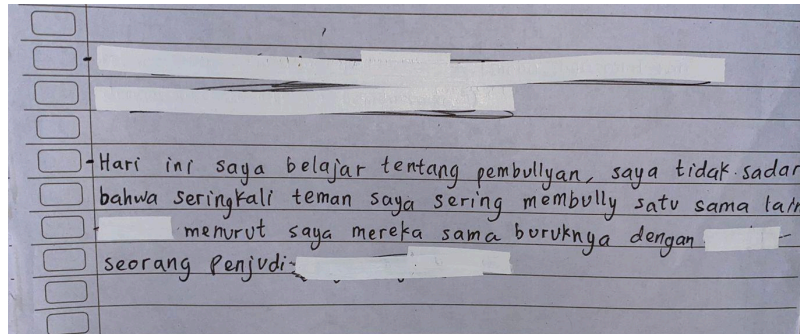 - Hari ini saya belajar tentang pembullyan, saya tidak sadar
bahwa seringkali teman saya sering membully satu sama lain
menurut saya mereka sama buruknya dengan
seorang penjudi